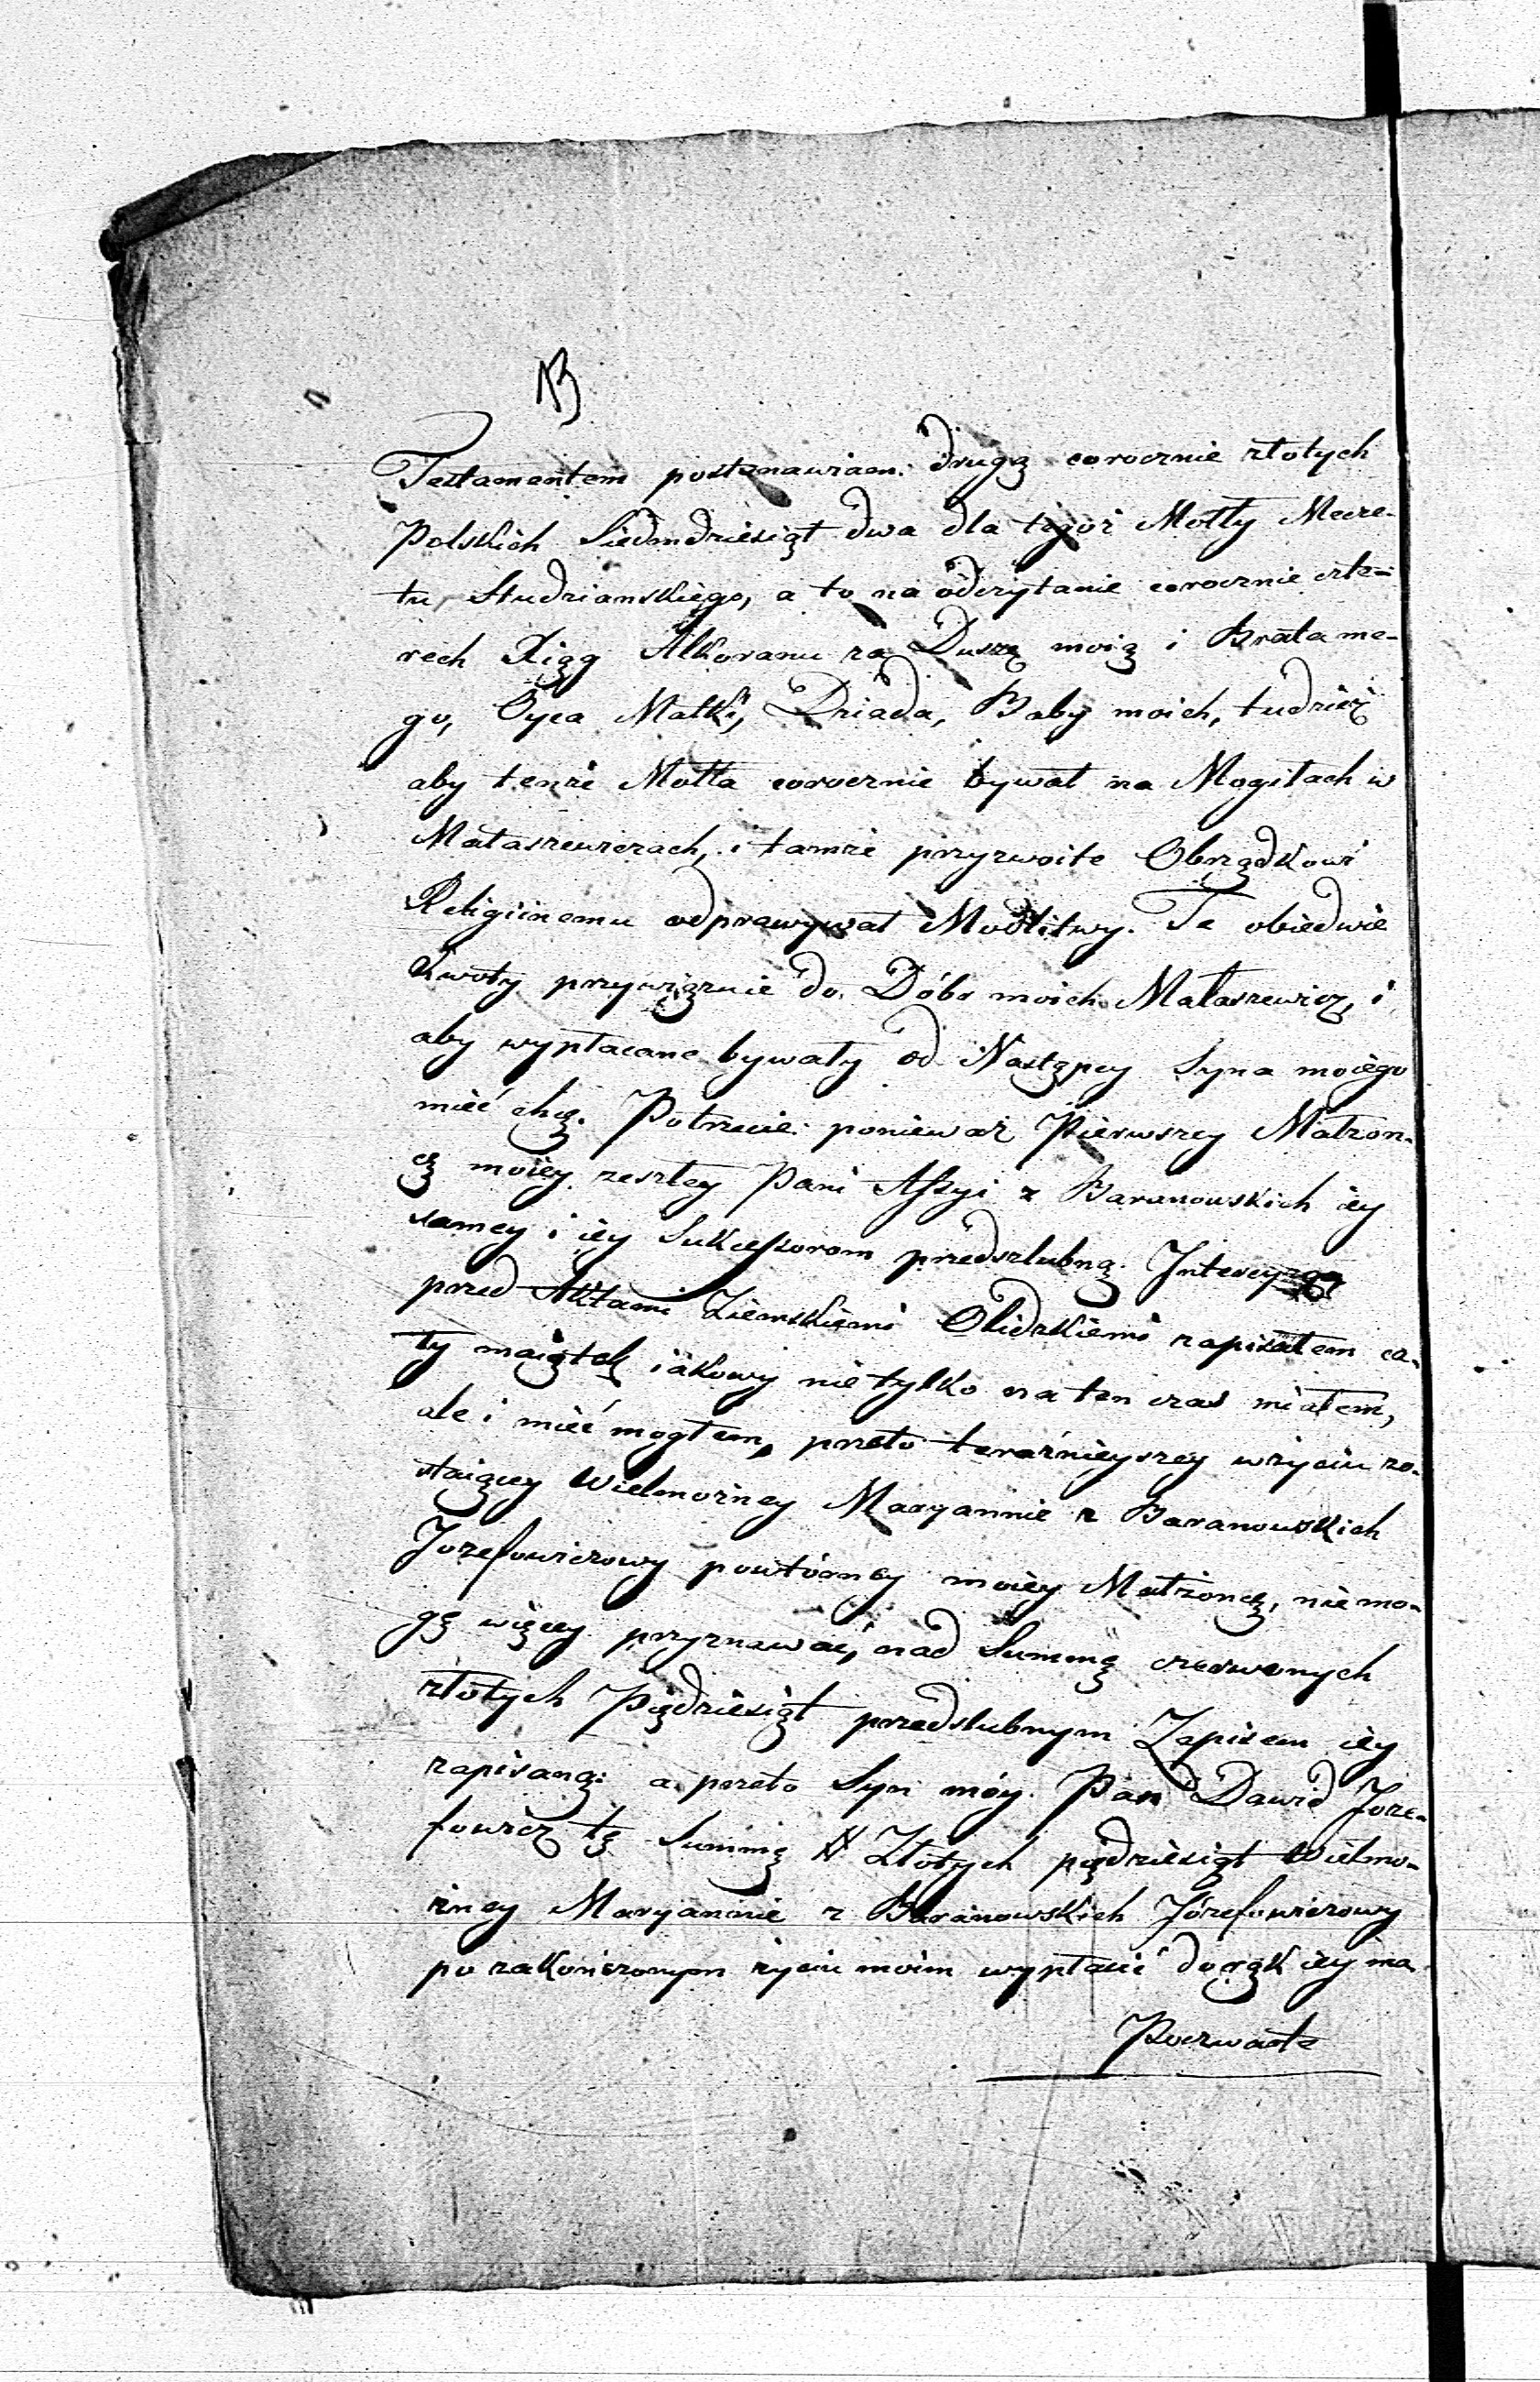 13
Testamentem postanawiam: drugą corocznie złotych
Polskich Siedmdziesiąt dwa dla tegoż Mołły Mecze-
tu Studzianskiego, a to na odczytanie corocznie czte-
rech Xiąg Alkoranu za Duszę moią i Brata me-
go, Oyca Matki, Dziada, Baby moich, tudzież
aby tenże Mołła corocznie bywał na Mogiłach w
Małaszewiczach, i tamże przyzwoite Obrządkowi
Religiinemu odprawywał Modlitwy. Te obiedwie
Kwoty przywiązuie do Dóbr moich Małaszewicz, i
aby wypłacane bywały od Następcy Syna moiego
mieć chcę. Potrzecie: ponieważ Pierwszey Małżon-
cę moiey zeszłey Pani Assyi z Baranowskich iey
samey i iey Sukcessorom przedszlubną Intercyzą
przed Aktami Ziemskiemi Olidzkiemi zapisałem ca-
ły maiątek iakowy nie tylko na ten czas miałem,
ale i mieć mogłem, przeto teraźnieyszey w życiu zo-
staiącey Wielmożney Maryannie z Baranowskich
Jozefowiczowy powtórney moiey Małżoncę, nie mo-
gę więcey przyznawać, nad Summę czerwonych
złotych Pięćdziesiąt przedslubnym Zapisem iey
zapisaną: a przeto Syn móy Pan Dawid Joze-
fowicz tę Summę # Złotych pięćdziesiąt Wielmo-
żney Maryannie z Baranowskich Józefowiczowy
po zakończonym życiu moim wypłacić do rąk iey ma.
Poczwarte